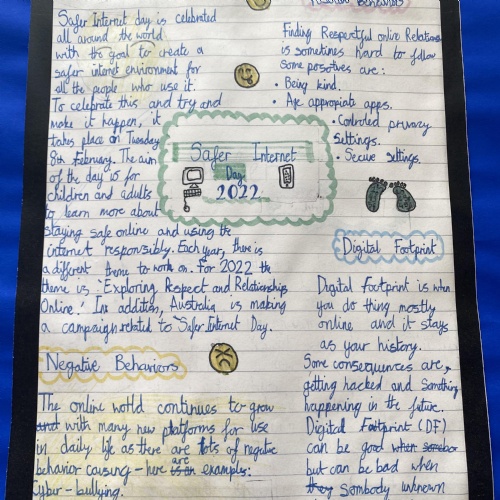 Safer Internet day is celebrated
all around the world
with the goal to create a
safer internet environment for
all the people who use it.
To celebrate this and try and
make it happen, it
takes place on Tuesday
8th February. The aim
of the day is for
children and adults
to learn more about
staying safe online and using the
internet responsibly. Each year, there is
a different theme to work on. For 2022 the
theme is 'Exploring Respect and Relationships
Online.' In addition, Australia is making
a campaign related to Safer Internet Day.
Safer Internet
Day
2022
Negative Behaviors
The online world continues to grow
and with many new platforms for use
in daily life as there are lots of negative
behavior causing - here is an are examples:
Cyber - bullying.
Positive Behaviors
Finding Respectful online Relations
is sometimes hard to follow
some posotives are:
• Being kind.
• Age appropiate apps.
• Controled privacy
settings.
• Secure settings.
Digital Footprint
Digital footprint is when
you do thing mostly
online and it stays
as your history.
Some consequences are,
getting hacked and somthing
happening in the future.
Digital Footprint (DF)
can be good when somebor
but can be bad when
they sombody unknown